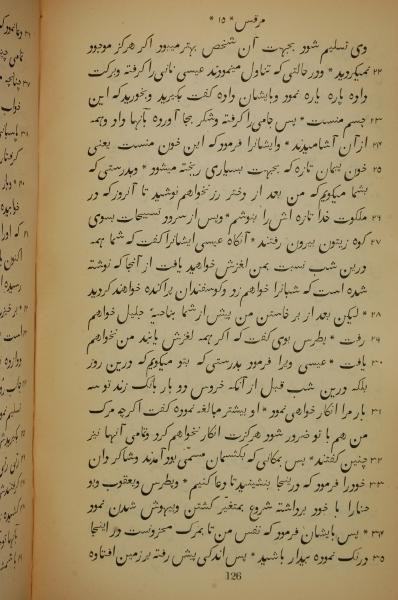 مرقس * ۱۵ *
وی تسلیم شود بجهت آن شخص بهتر میبود اگر هرگز موجود
۲۲ نمیکردید * ودر حالتی که تناول مینمودند عیسی نانی را گرفته وبرکت
داده پاره پاره نمود وبایشان داده گفت بگیرید وبخورید که این
۲۳ جسم منست * پس جامی را گرفته وشکر بجا آورده بآنها داد وهمه
۲۴ از آن آشامیدند * وایشانرا فرمود که این خون منست یعنی
۲۵ خون پیمان تازه که بجهت بسیاری ریخته میشود * وبدرستی که
بشما میکویم که من بعد از دختر رز نخواهم نوشید تا آنروز که در
۲۶ ملکوت خدا تازه اش را بنوشم * وپس از سرود تسبیحات بسوی
۲۷ کوه زیتون بیرون رفتند * آنکاه عیسی ایشانرا گفت که شما همه
درین شب نسبت بمن لغزش خواهید یافت از آنجا که نوشته
شده است که شبانرا خواهم زد وکوسفندان پراکنده خواهند کردید
۲۸ * لیکن بعد از بر خاستن من پیش از شما بناحیهٔ جلیل خواهم
۲۹ رفت * پطرس بوی گفت که اگر همه لغزش یابند من نخواهم
۳۰ یافت * عیسی ویرا فرمود بدرستی که بتو میکویم که درین روز
بلکه درین شب قبل از آنکه خروس دو بار بانک زند تو سه
۳۱ بار مرا انکار خواهی نمود * او بیشتر مبالغه نموده گفت اگرچه مرک
من هم با تو ضرور شود هرگزت انکار نخواهم کرد وتمامی آنها نیز
۳۲ چنین گفتند * پس بمکانی که بکتسمان مسمّی بود آمدند وشاگردان
۳۳ خود را فرمود که در اینجا بنشینید تا دعا کنیم * وپطرس ویعقوب ویو
حنارا با خود برداشته شروع بمتغیّر کشتن وبیهوش شدن نمود
۳۴ * پس بایشان فرمود که نفس من تا بمرک محزونست در اینجا
۳۵ درنک نموده بیدار باشید * پس اندکی پیش رفته بر زمین افتاده
126